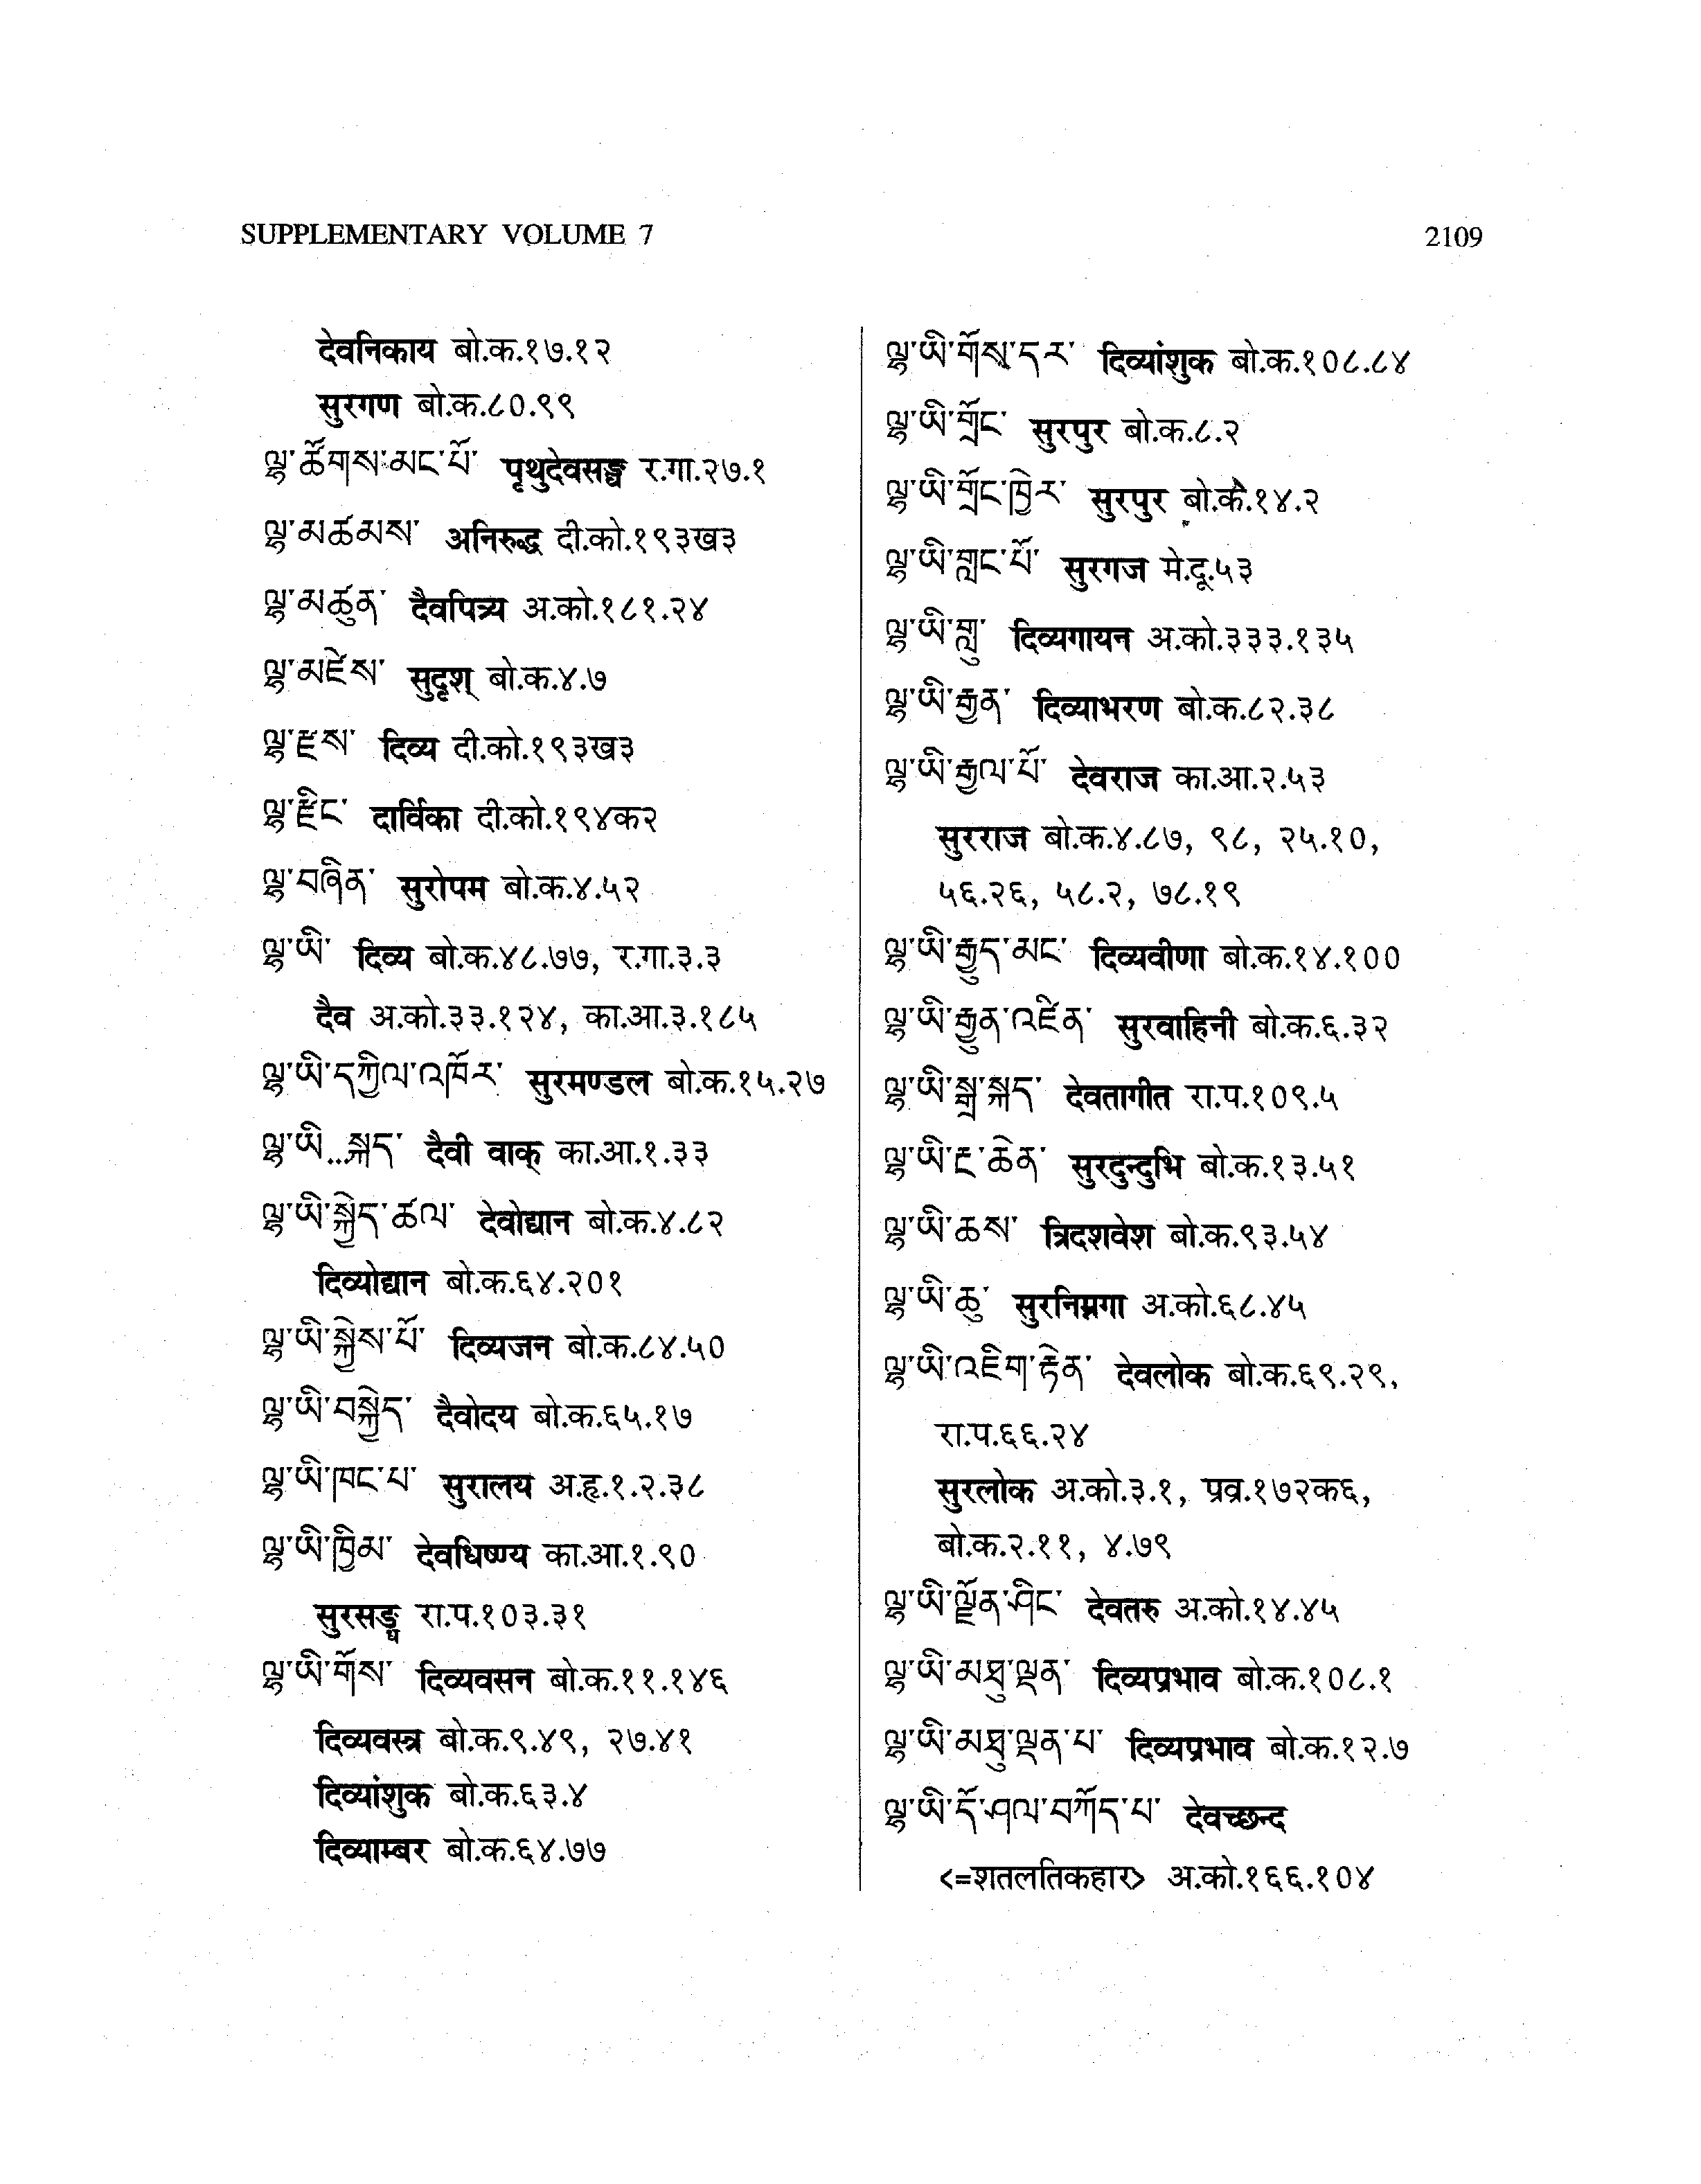 SUPPLEMENTARY VOLUME 7
2109
देवनिकाय बो.क.१७.१२
सुरगण बो.क.८०.९९
ལྷ་ཚོགས་མང་པོ་ पृथुदेवसङ्घ र.गा.२७.१
ལྷ་མཚམས་ अनिरुद्ध दी.को.१९३ख३
ལྷ་མཚུན་ दैवपित्र्य अ.को.१८१.२४
ལྷ་མཛེས་ सुदृश् बो.क.४.७
ལྷ་རྫས་ दिव्य दी.को.१९३ख३
ལྷ་རྫིང་ दार्विका दी.को.१९४क२
ལྷ་བཞིན་ सुरोपम बो.क.४.५२
ལྷ་ཡི་ दिव्य बो.क.४८.७७, र.गा.३.३
दैव अ.को.३३.१२४, का.आ.३.१८५
ལྷ་ཡི་དཀྱིལ་འཁོར་ सुरमण्डल बो.क.१५.२७
ལྷ་ཡི...སྐད་ दैवी वाक् का.आ.१.३३
ལྷ་ཡི་སྐྱེད་ཚལ་ देवोद्यान बो.क.४.८२
दिव्योद्यान बो.क.६४.२०१
ལྷ་ཡི་སྐྱེས་པོ་ दिव्यजन बो.क.८४.५०
ལྷ་ཡི་བསྐྱེད་ दैवोदय बो.क.६५.१७
ལྷ་ཡི་ཁང་པ་ सुरालय अ.हृ.१.२.३८
ལྷ་ཡི་ཁྱིམ་ देवधिष्ण्य का.आ.१.९०
सुरसङ्घ रा.प.१०३.३१
ལྷ་ཡི་གོས་ दिव्यवसन बो.क.११.१४६
दिव्यवस्त्र बो.क.९.४९, २७.४१
दिव्यांशुक बो.क.६३.४
दिव्याम्बर बो.क.६४.७७
ལྷ་ཡི་གོས་དར་ दिव्यांशुक बो.क.१०८.८४
ལྷ་ཡི་གྲོང་ सुरपुर बो.क.८.२
ལྷ་ཡི་གྲོང་ཁྱེར་ सुरपुर बो.क.१४.२
ལྷ་ཡི་གླང་པོ་ सुरगज मे.दू.५३
ལྷ་ཡི་གླུ་ दिव्यगायन अ.को.३३३.१३५
ལྷ་ཡི་རྒྱན་ दिव्याभरण बो.क.८२.३८
ལྷ་ཡི་རྒྱལ་པོ་ देवराज का.आ.२.५३
सुरराज बो.क.४.८७, ९८, २५.१०,
५६.२६, ५८.२, ७८.१९
ལྷ་ཡི་རྒྱུད་མང་ दिव्यवीणा बो.क.१४.१००
ལྷ་ཡི་རྒྱུན་འཛིན་ सुरवाहिनी बो.क.६.३२
ལྷ་ཡི་སྒྲ་སྐད་ देवतागीत रा.प.१०९.५
ལྷ་ཡི་རྔ་ཆེན་ सुरदुन्दुभि बो.क.१३.५१
ལྷ་ཡི་ཆས་ त्रिदशवेश बो.क.९३.५४
ལྷ་ཡི་ཆུ་ सुरनिम्नगा अ.को.६८.४५
ལྷ་ཡི་འཇིག་རྟེན་ देवलोक बो.क.६९.२९,
रा.प.६६.२४
सुरलोक अ.को.३.१, प्रव्र.१७२क६,
बो.क.२.११, ४.७९
ལྷ་ཡི་ལྗོན་ཤིང་ देवतरु अ.को.१४.४५
ལྷ་ཡི་མཐུ་ལྡན་ दिव्यप्रभाव बो.क.१०८.१
ལྷ་ཡི་མཐུ་ལྡན་པ་ दिव्यप्रभाव बो.क.१२.७
ལྷ་ཡི་དོ་ཤལ་བཀོད་པ་ देवच्छन्द
<=शतलतिकहार> अ.को.१६६.१०४